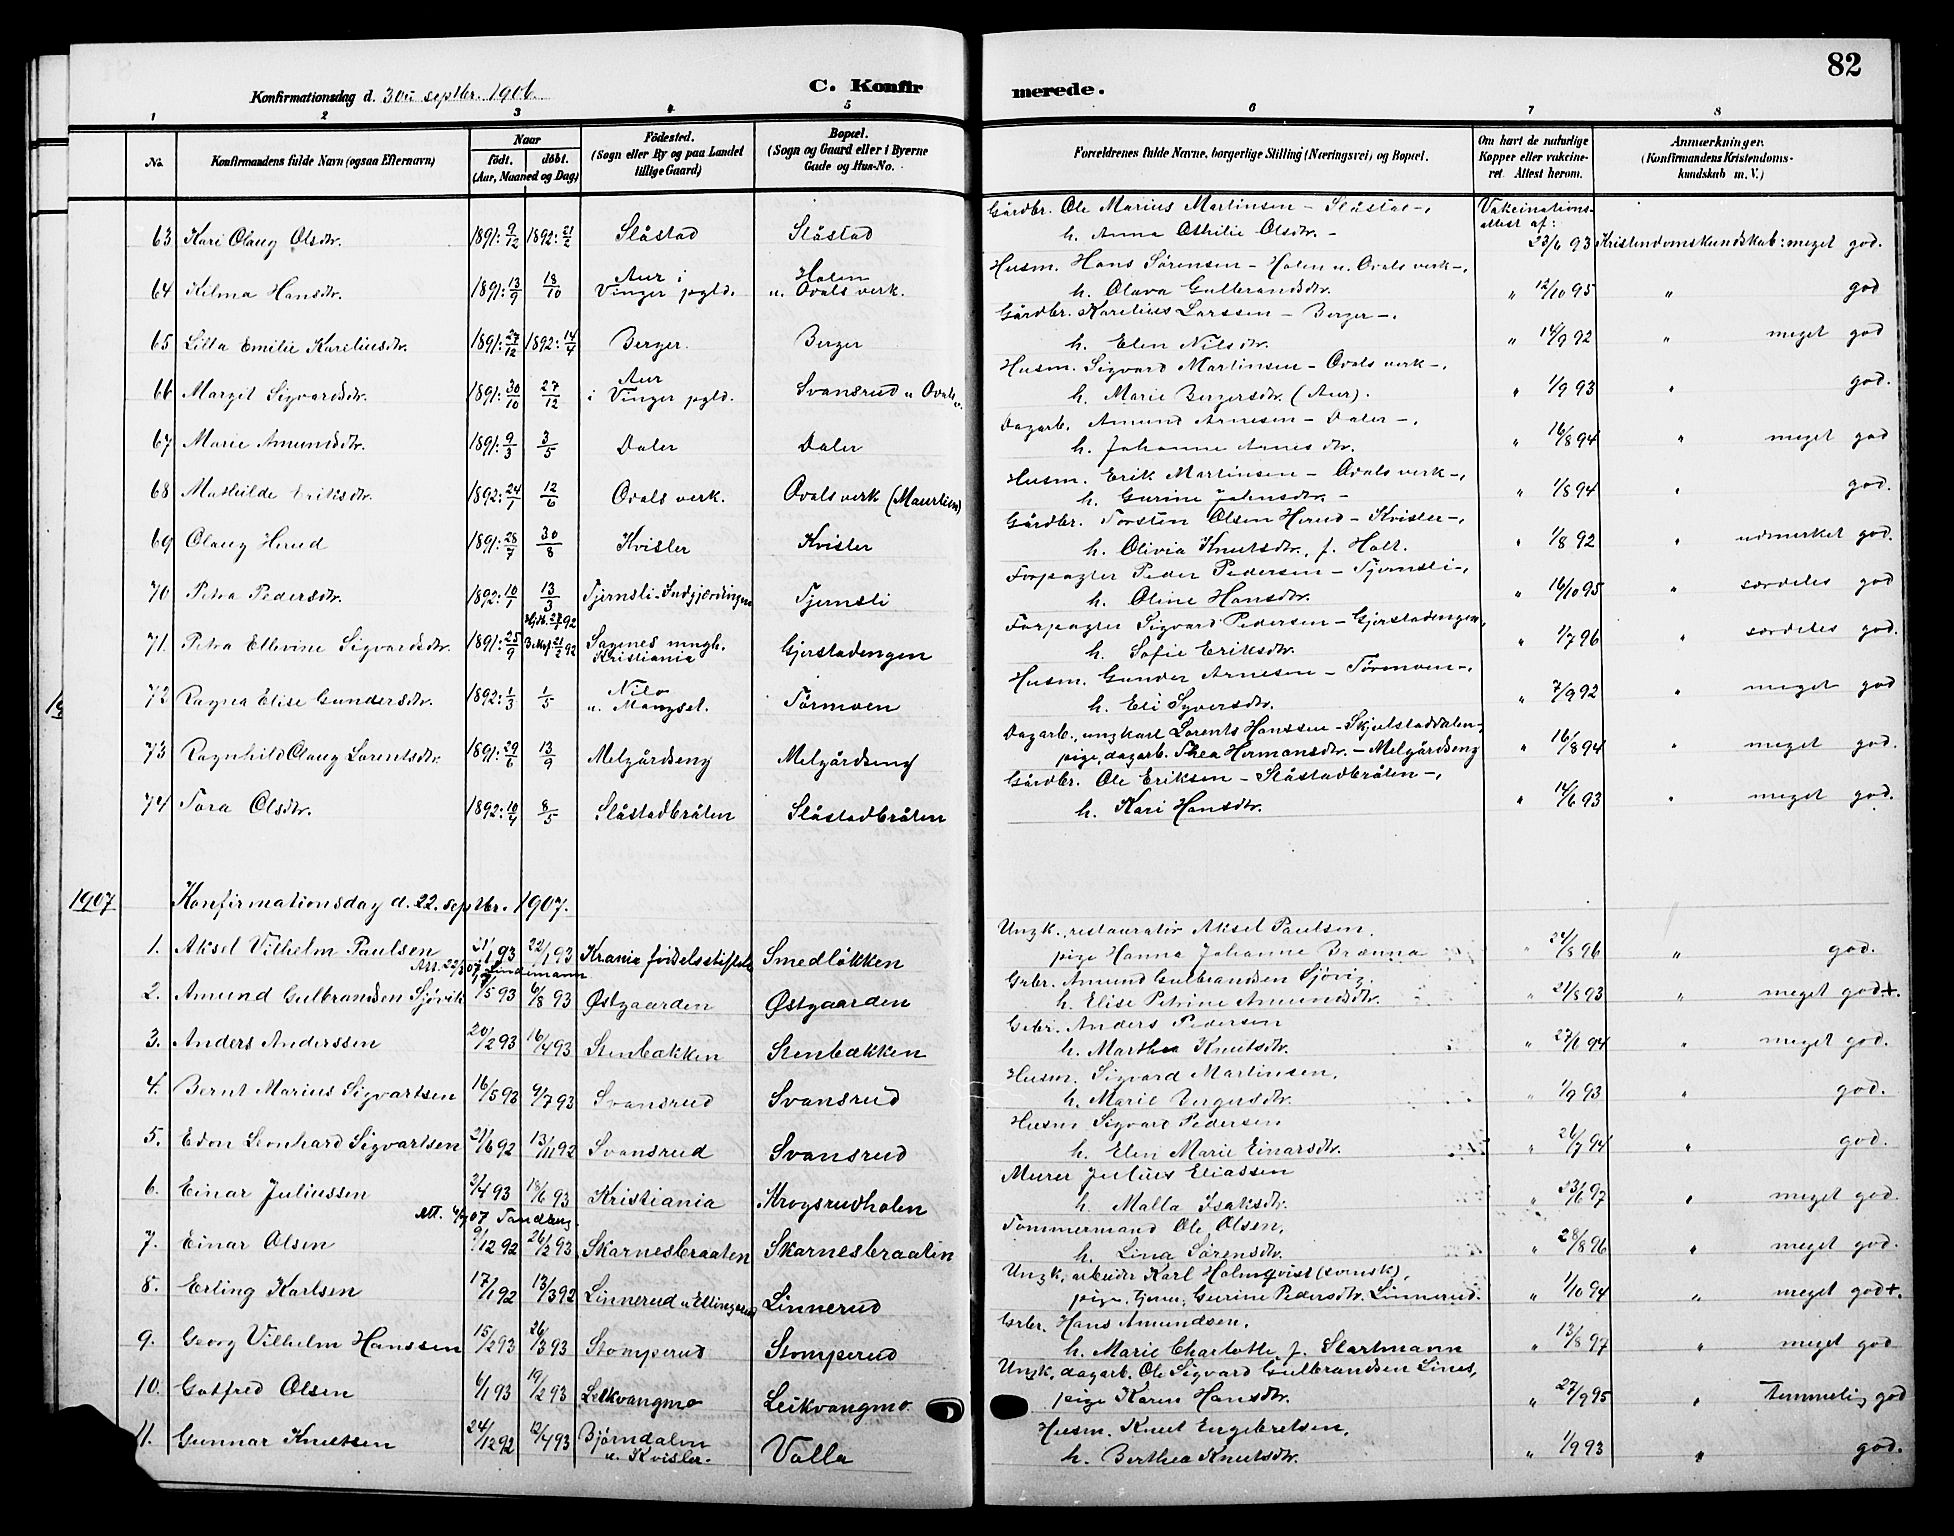 82
Konfirmationsdag d. 30te septbr. 1906.
C. Konfirmerede.
1 2 3 4 5 6 7 8
No. Konfirmandens fulde Navn (ogsaa Efternavn) Naar født. døbt. (Aar, Maaned og Dag) Fødested. (Sogn eller By og paa Landet tillige Gaard) Bopæl. (Sogn og Gaard eller i Byerne Gade og Hus-No. Forældrenes fulde Navne, borgerlige Stilling (Næringsvei) og Bopæl. Om havt de naturlige Kopper eller vakcineret. Attest herom. Anmærkninger. (Konfirmandens Kristendomskundskab m. V.)
63 Kari Olaug Olsdtr. 1891: 9/12 1892: 21/2 Slåstad Slåstad Gårdbr. Ole Marius Martinsen – Slåstad –, h. Anna Othilie Olsdtr. – Vakcinationsattest af: 23/6 93 Kristendomskundskab: meget god.
64 Hilma Hansdtr. 1891: 13/9 18/10 Aur i Vinger pgld. Holen u. Ovals verk. Husm. Hans Sørensen – Holen u. Ovals verk –, h. Olava Gulbrandsdtr. " 12/10 95 " god
65 Lilla Emilie Kareliusdtr. 1891: 27/12 1892: 14/4 Berger. Berger Gårdbr. Karelius Larssen – Berger –, h. Elen Nilsdtr. " 14/9 92 " meget god
66 Margit Sigvardsdtr. 1891: 30/10 27/12 Aur i Vinger pgld. Svansrud u. Ovals v. Husm. Sigvard Martinsen – Ovals verk –, h. Marie Bergersdtr. (Aur). " 1/9 93 " god.
67 Marie Amundsdtr. 1891: 9/3 3/5 Daler Daler Dagarb. Amund Arnesen – Daler –, h. Johanne Arnesdtr. " 16/8 94 " meget god
68 Mathilde Eriksdtr. 1892: 24/1 12/6 Ovals verk. Ovals verk Husm. Erik Martinsen – Ovals verk –, h. Gurine Johnsdtr. – " 1/8 94 " god.
69 Olaug Herud 1891: 28/7 30/8 Kvisler Kvisler Gårdbr. Torsten Olsen Herud – Kvisler –, h. Olivia Knutsdtr., f. Holt. " 1/8 92 " udmerket god.
70 Petra Pedersdtr. 1892: 10/1 13/3 Tjernsli-Indgjærdingen Tjernsli Forpagter Peder Pedersen – Tjernsli –, h. Oline Hansdtr. " 16/10 95 " særdeles god
71 Petra Ellevine Sigvardsdtr. 1891: 25/9 Sagenes mngh. Kristiania Gjerstadengen Forpagter Sigvard Pedersen – Gjerstadengen, h. Sofie Eriksdtr. " 1/7 96 " særdeles god.
72 Ragna Elise Gundersdtr. 1892: 1/3 1/5 Nilo u. Mangset. Tørmoen Husm. Gunder Arnesen – Tørmoen –, h. Eli Syversdtr. " 7/9 92 " meget god
73 Ragnhild Olaug Lorentsdtr. 1891: 29/6 13/9 Melgårdseng Melgårdseng Dagarb., ungkarl Lorents Hanssen – Skjelstaddalen, pige, dagarb. Thea Hermansdtr. – Melgårdseng " 16/8 94 " meget god.
74 Tora Olsdtr. 1892: 10/4 8/5 Slåstadbråten Slåstadbråten Gårdbr. Ole Eriksen – Slåstadbråten –, h. Kari Hansdtr. " 14/6 93 " meget god.
1907 Konfirmationsdag d. 22. septbr. 1907.
1. Aksel Vilhelm Paulsen 21/1 93 22/1 93 Krania fødselsstiftelse Smedløkken Ungk., restauratør Aksel Paulsen, pige Hanna Johanne Brænna " 24/8 96 " god.
Att. 22/3 07 Lindemann
2. Amund Gulbrandsen Sjøvik 9/5 93 6/8 93 Østgaarden Østgaarden Grbr. Amund Gulbrandsen Sjøvig. h. Elise Petrine Amundsdtr. " 21/8 93 " meget god+.
3. Anders Anderssen 20/2 93 16/4 93 Stenbækken Stenbækken Grbr. Anders Pedersen h. Marthea Knutsdtr. " 27/6 94 " meget god.
4. Bernt Marius Sigvartsen 16/5 93 9/7 93 Svansrud Svansrud Husm. Sigvard Martinsen, h. Marie " 1/9 93 " god.
5. Edon Leonhard Sigvartsen 21/6 92 13/11 92 Svansrud Svansrud Husm Sigvard Pedersen h. Elen Marie Einarsdtr. " 26/7 94 " god.
6. Einar Juliussen 3/4 93 18/6 93 Kristiania Krogsrudholen Murer Julius Eliassen h. Malla Isaksdtr. " 23/6 97 " meget god.
Att. 4/7 07 Tandberg.
7. Einar Olsen 9/12 92 26/2 93 Skarnesbraaten Skarnesbraaten Tømmermand Ole Olsen, h. Lina Sørensdtr. " 28/8 96 " meget god.
8. Erling Karlsen 17/1 92 13/3 92 Linnerud u. Ellingsrud Linnerud Ungk, arbeider Karl Holmqvist (svensk), pige, tjener, Gurine Pedersdtr. Linnerud. " 1/10 94 " meget god+.
9. Georg Vilhelm Hanssen 15/2 93 26/3 93 Stomperud Stomperud Grbr. Hans Amundsen, h. Marie Charlotte f. Startmann " 13/8 97 " meget god
10. Gotfred Olsen 6/1 93 19/2 93 Leikvangmo Leikvangmo Ungk, dagarb. Ole Sigvard Gulbrandsen Lines, pige Karen Hansdtr. " 27/9 95 " temmelig god
11. Gunnar Knutsen 24/12 92 12/4 93 Bjørndalen u. Kvisler. Valla Husm. Knut Engebretsen, h. Berthea Knutsdtr. " 1/9 93 " god.